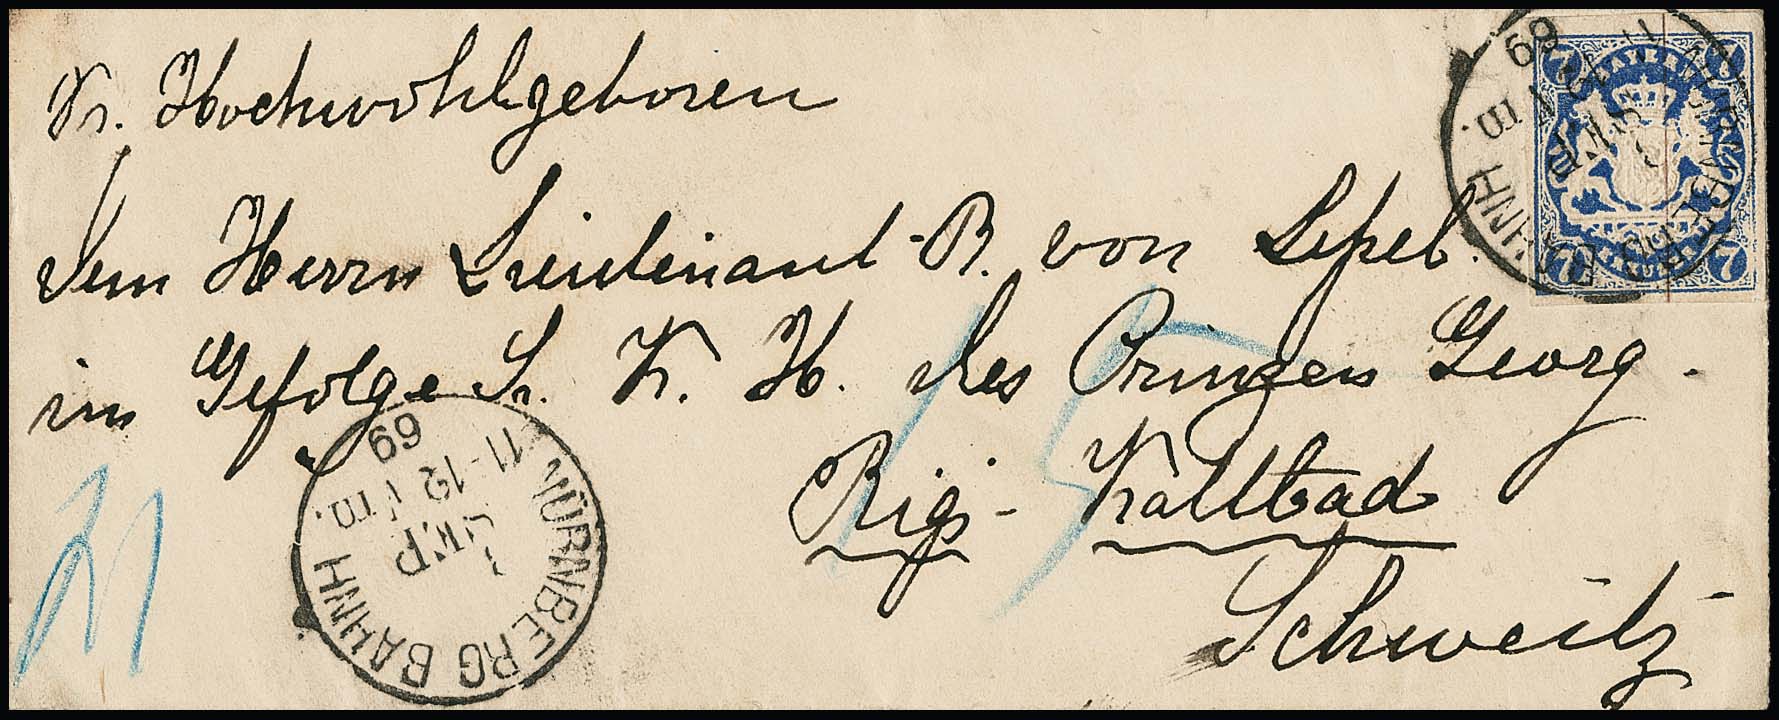 Sr. Hochwohlgeboren
dem Herrn Lieutenant-B. von Lepel.
im Gefolge Sr. K. H. des Prinzen Georg.
Rigi-Kaltbad
Schweitz
NÜRNBERG BAHNH
SEP
11-12 Vm.
69
NÜRNBERG BAHNH
SEP
Vm.
69
BAYERN
7 7
7 7
15